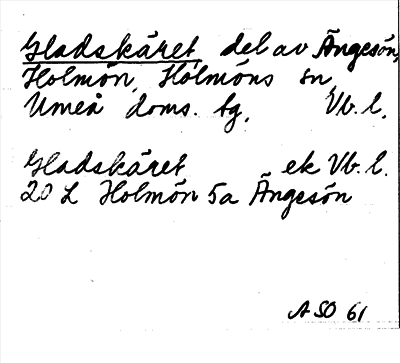 Gladskäret, del av Ängesön,
Holmön, Holmöns sn,
Umeå doms. tg, Vb. l.
Gladskäret ek Vb. l.
20 L Holmön 5a Ängesön
ASO 61